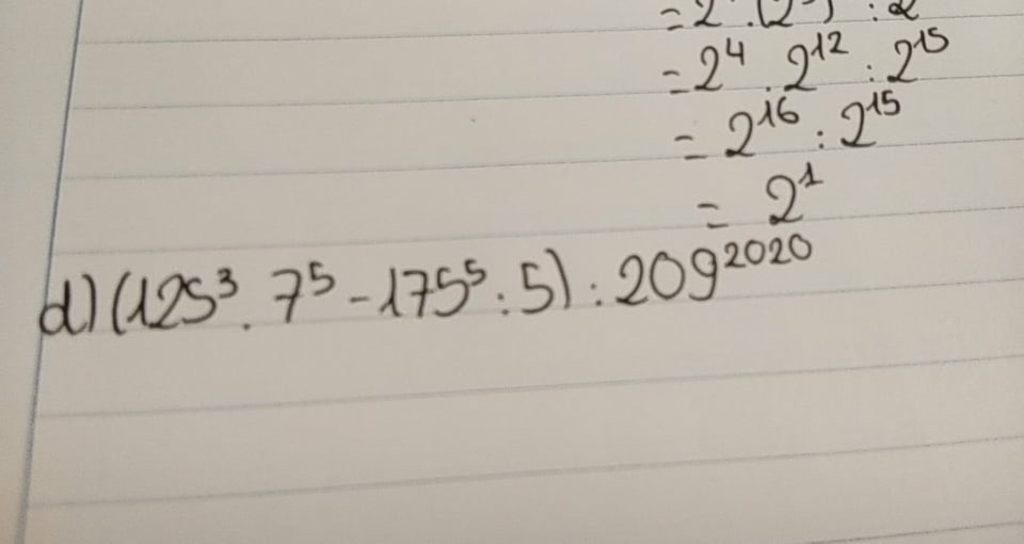 = 2⁴ . 2¹² : 2¹⁵
= 2¹⁶ : 2¹⁵
= 2¹
d) (125³ . 7⁵ - 175⁵ : 5) : 209²⁰²⁰